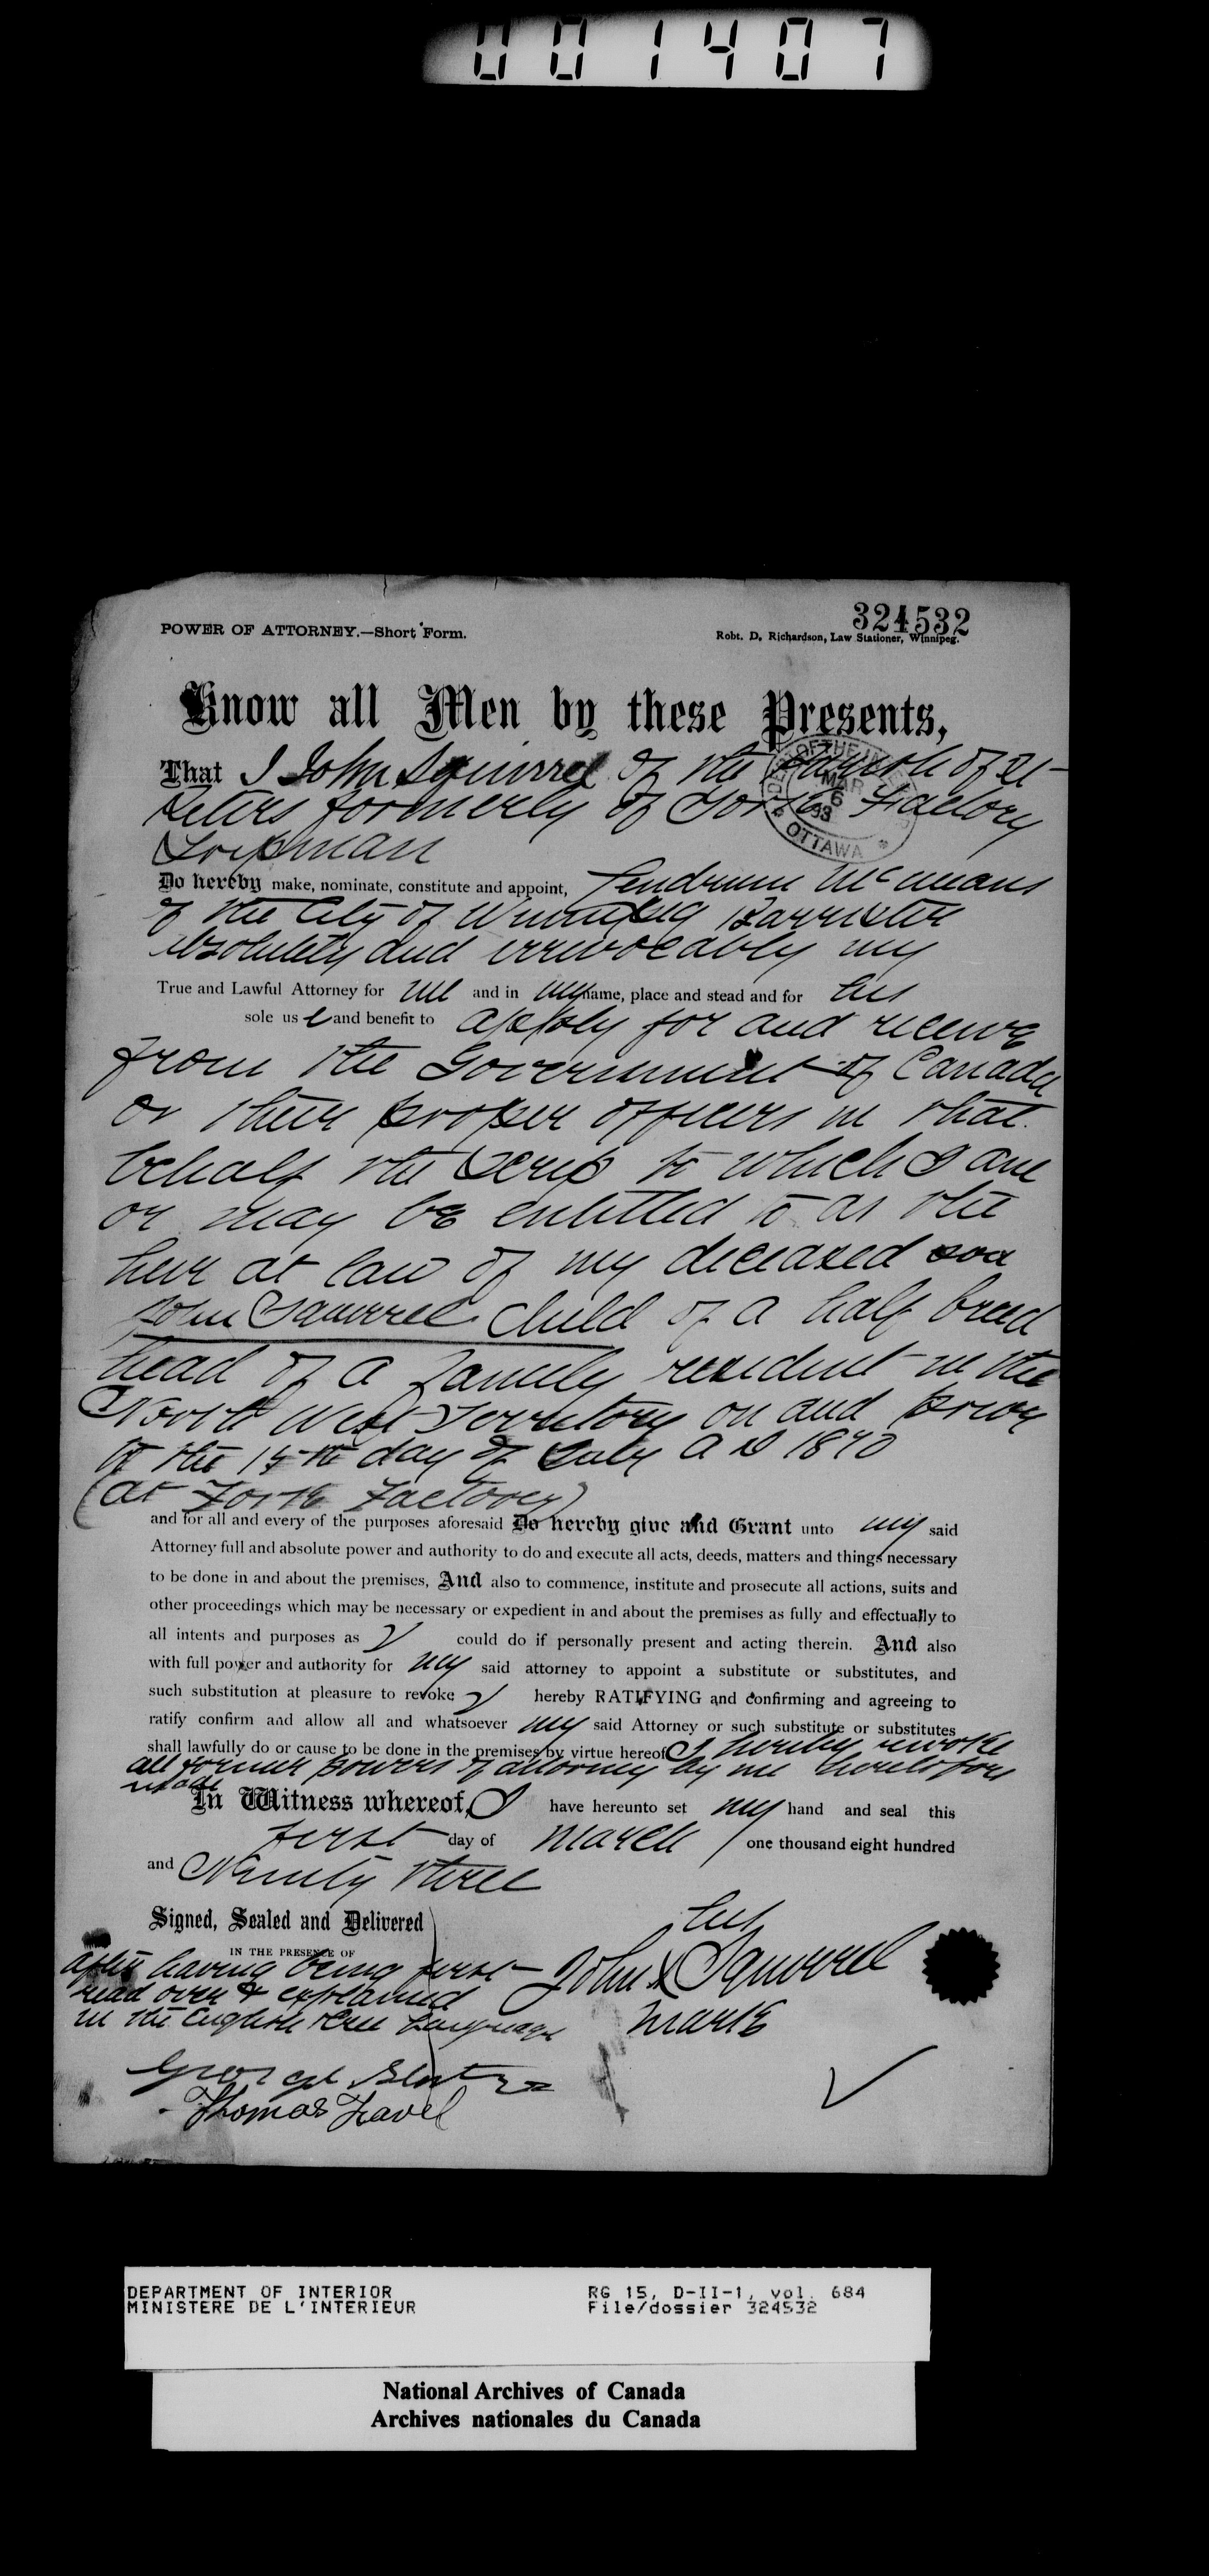 001407
324532
POWER OF ATTORNEY.—Short Form.
Robt. D. Richardson, Law Stationer, Winnipeg.
Know all Men by these Presents,
That I John Squirrel of the Parish of St
Peters formerly of York Factory
Tripman
DEPT OF THE INTERIOR
MAR
6
93
OTTAWA
Do hereby make, nominate, constitute and appoint, Lendrum McMeans
of the City of Winnipeg Barrister
absolutely and irrevocably my
True and Lawful Attorney for me and in my name, place and stead and for his
sole use and benefit to apply for and receive
from the Government of Canada
or their proper officers in that
behalf the Scrip to which I am
or may be entitled to as the
heir at law of my deceased son
John Squirrel child of a half breed
head of a family resident in the
North West Territory on and prior
to the 15th day of July A D 1870
(at York Factory)
and for all and every of the purposes aforesaid Do hereby give and Grant unto my said
Attorney full and absolute power and authority to do and execute all acts, deeds, matters and things necessary
to be done in and about the premises, And also to commence, institute and prosecute all actions, suits and
other proceedings which may be necessary or expedient in and about the premises as fully and effectually to
all intents and purposes as I could do if personally present and acting therein. And also
with full power and authority for my said attorney to appoint a substitute or substitutes, and
such substitution at pleasure to revoke I hereby RATIFYING and confirming and agreeing to
ratify confirm and allow all and whatsoever my said Attorney or such substitute or substitutes
shall lawfully do or cause to be done in the premises by virtue hereof I hereby revoke
all former powers of attorney by me heretofore
made
In Witness whereof, I have hereunto set my hand and seal this
first day of March one thousand eight hundred
and Ninety three
Signed, Sealed and Delivered
IN THE PRESENCE OF
after having being first
read over & explained
in the English & Cree Language
his
John X Squirrel
mark
George
Thomas Favel
DEPARTMENT OF INTERIOR
MINISTERE DE L'INTERIEUR
RG 15, D-II-1, vol. 684
File/dossier 324532
National Archives of Canada
Archives nationales du Canada